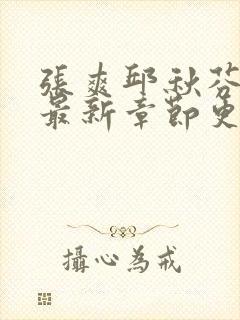 張爽邱秋芬
最新章節更
攝心為戒